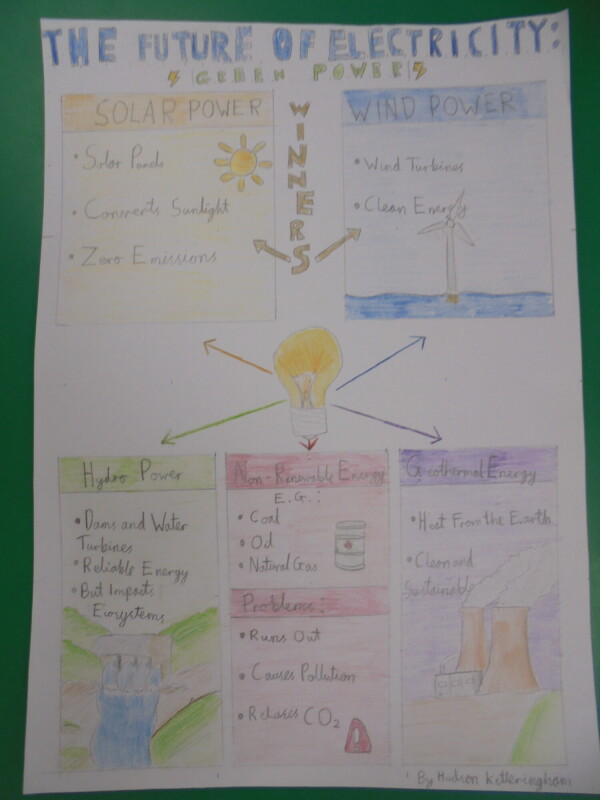 THE FUTURE OF ELECTRICITY:
GREEN POWER
SOLAR POWER
• Solar Panels
• Converts Sunlight
• Zero Emissions
WINNERS
WIND POWER
• Wind Turbines
• Clean Energy
Hydro Power
• Dams and Water
Turbines
• Reliable Energy
• But Impacts
Ecosystems
Non-Renewable Energy
E.G.:
• Coal
• Oil
• Natural Gas
Problems:
• Runs Out
• Causes Pollution
• Releases CO₂
Geothermal Energy
• Heat From the Earth
• Clean and
Sustainable
By Hudson Ketteringham